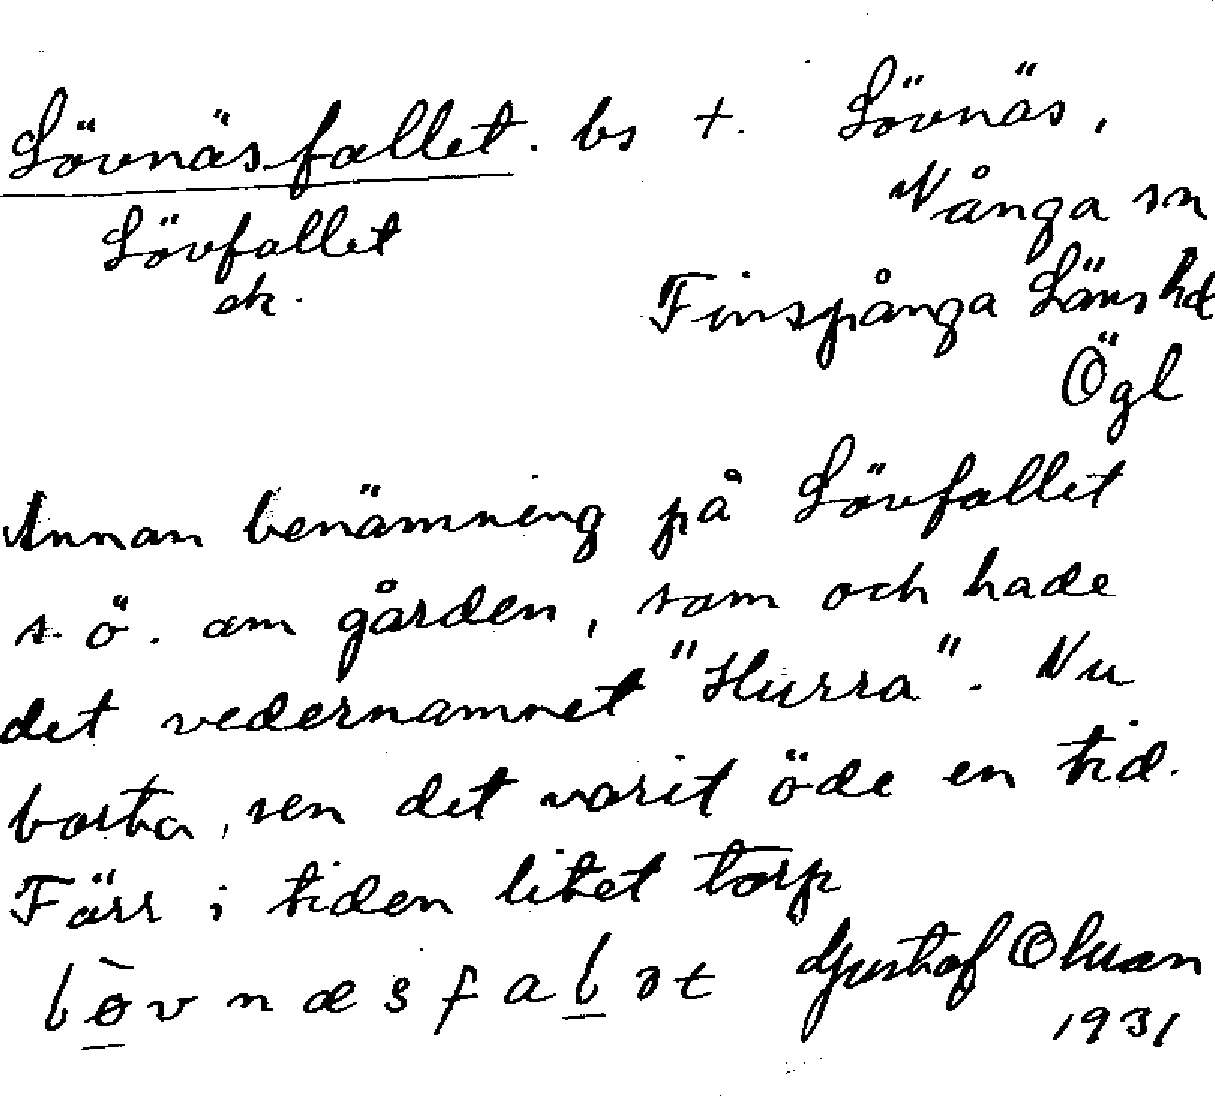 Lövnäsfallet. bs +. Lövnäs,
Lövfallet Vånga sn
ok. Finspånga Läns hd
Ögl
Annan benämning på Lövfallet
s. ö. om gården, som och hade
det vedernamnet "Hurra". Nu
borta, sen det varit öde en tid.
Förr i tiden litet torp
Gustaf Olsson
1931